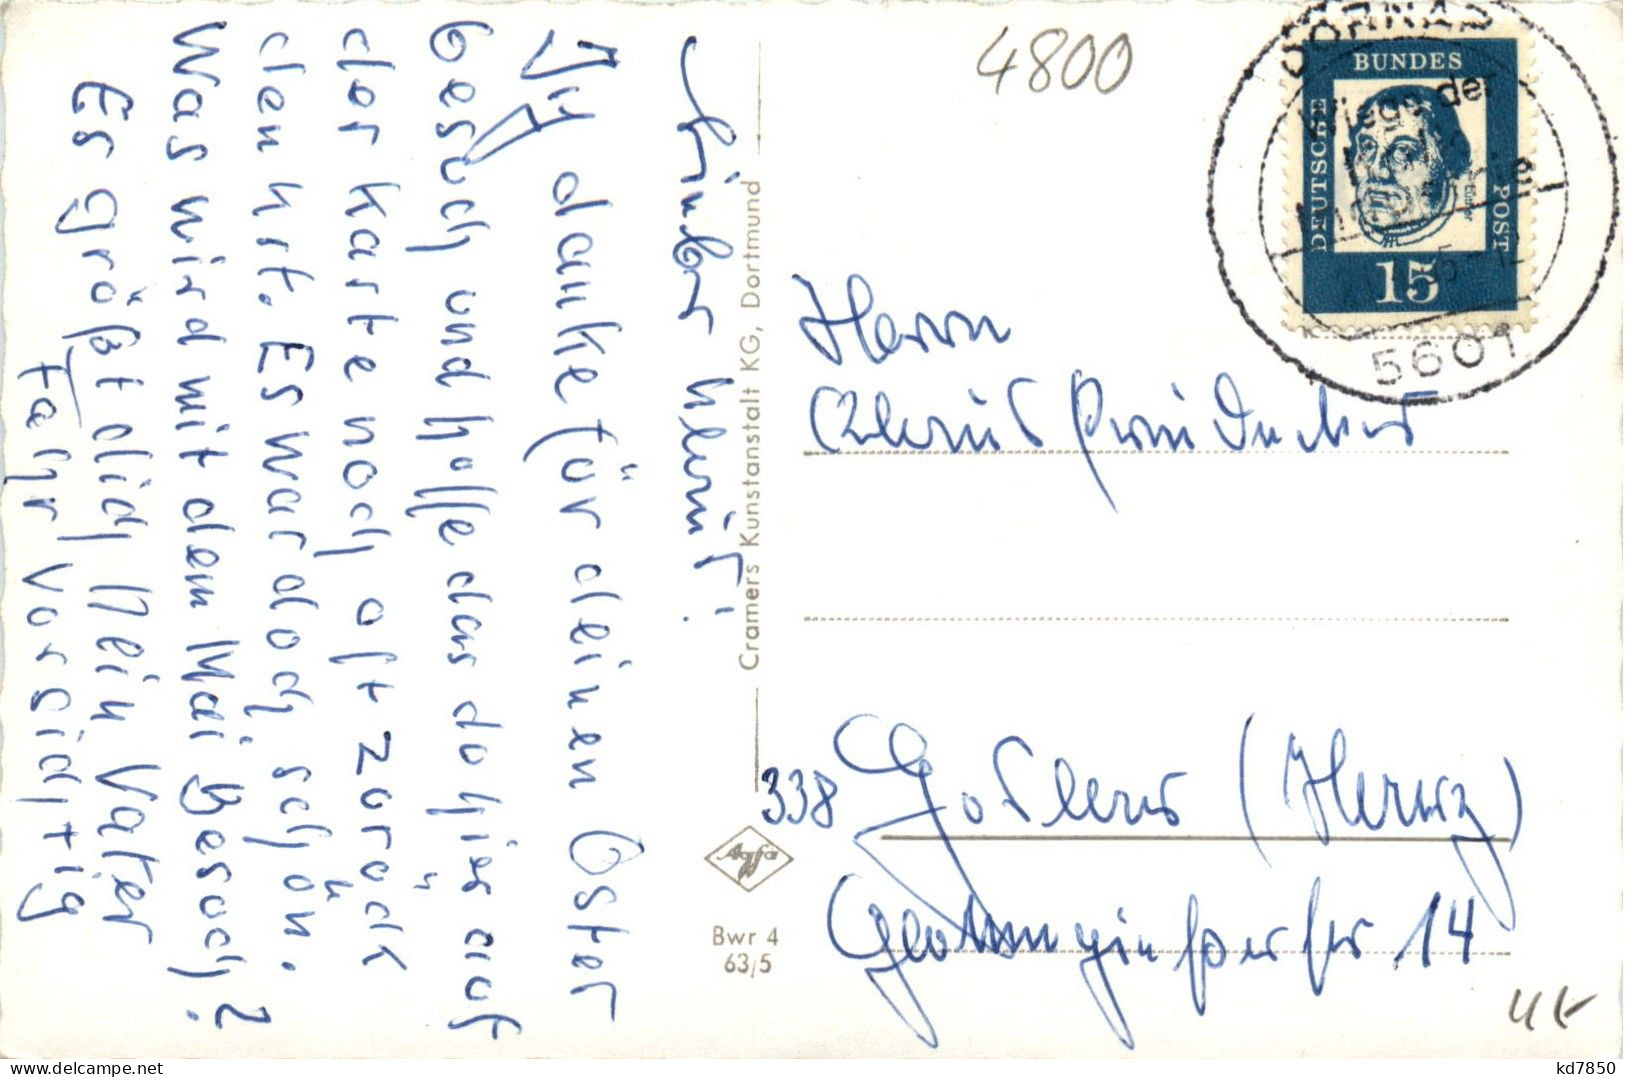 4800
DORNAP
Wiege der
Kalkindustrie
5601
DEUTSCHE
BUNDES
POST
Luther
15
Lieber Klaus!
Ich danke für deinen Oster
besuch und hoffe das du hier auf
der Karte noch oft zurück
denkst. Es war doch schön.
Was wird mit dem Mai Besuch?
Es grüßt dich Dein Vater
Fahr vorsichtig
Cramers Kunstanstalt KG, Dortmund
Agfa
Bwr 4
63/5
Herrn
Klaus
338 Goslar (Harz)
14
kd7850